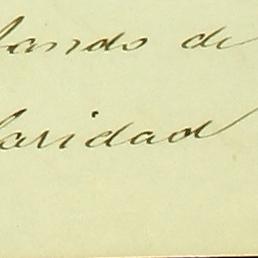 tando de
laridad